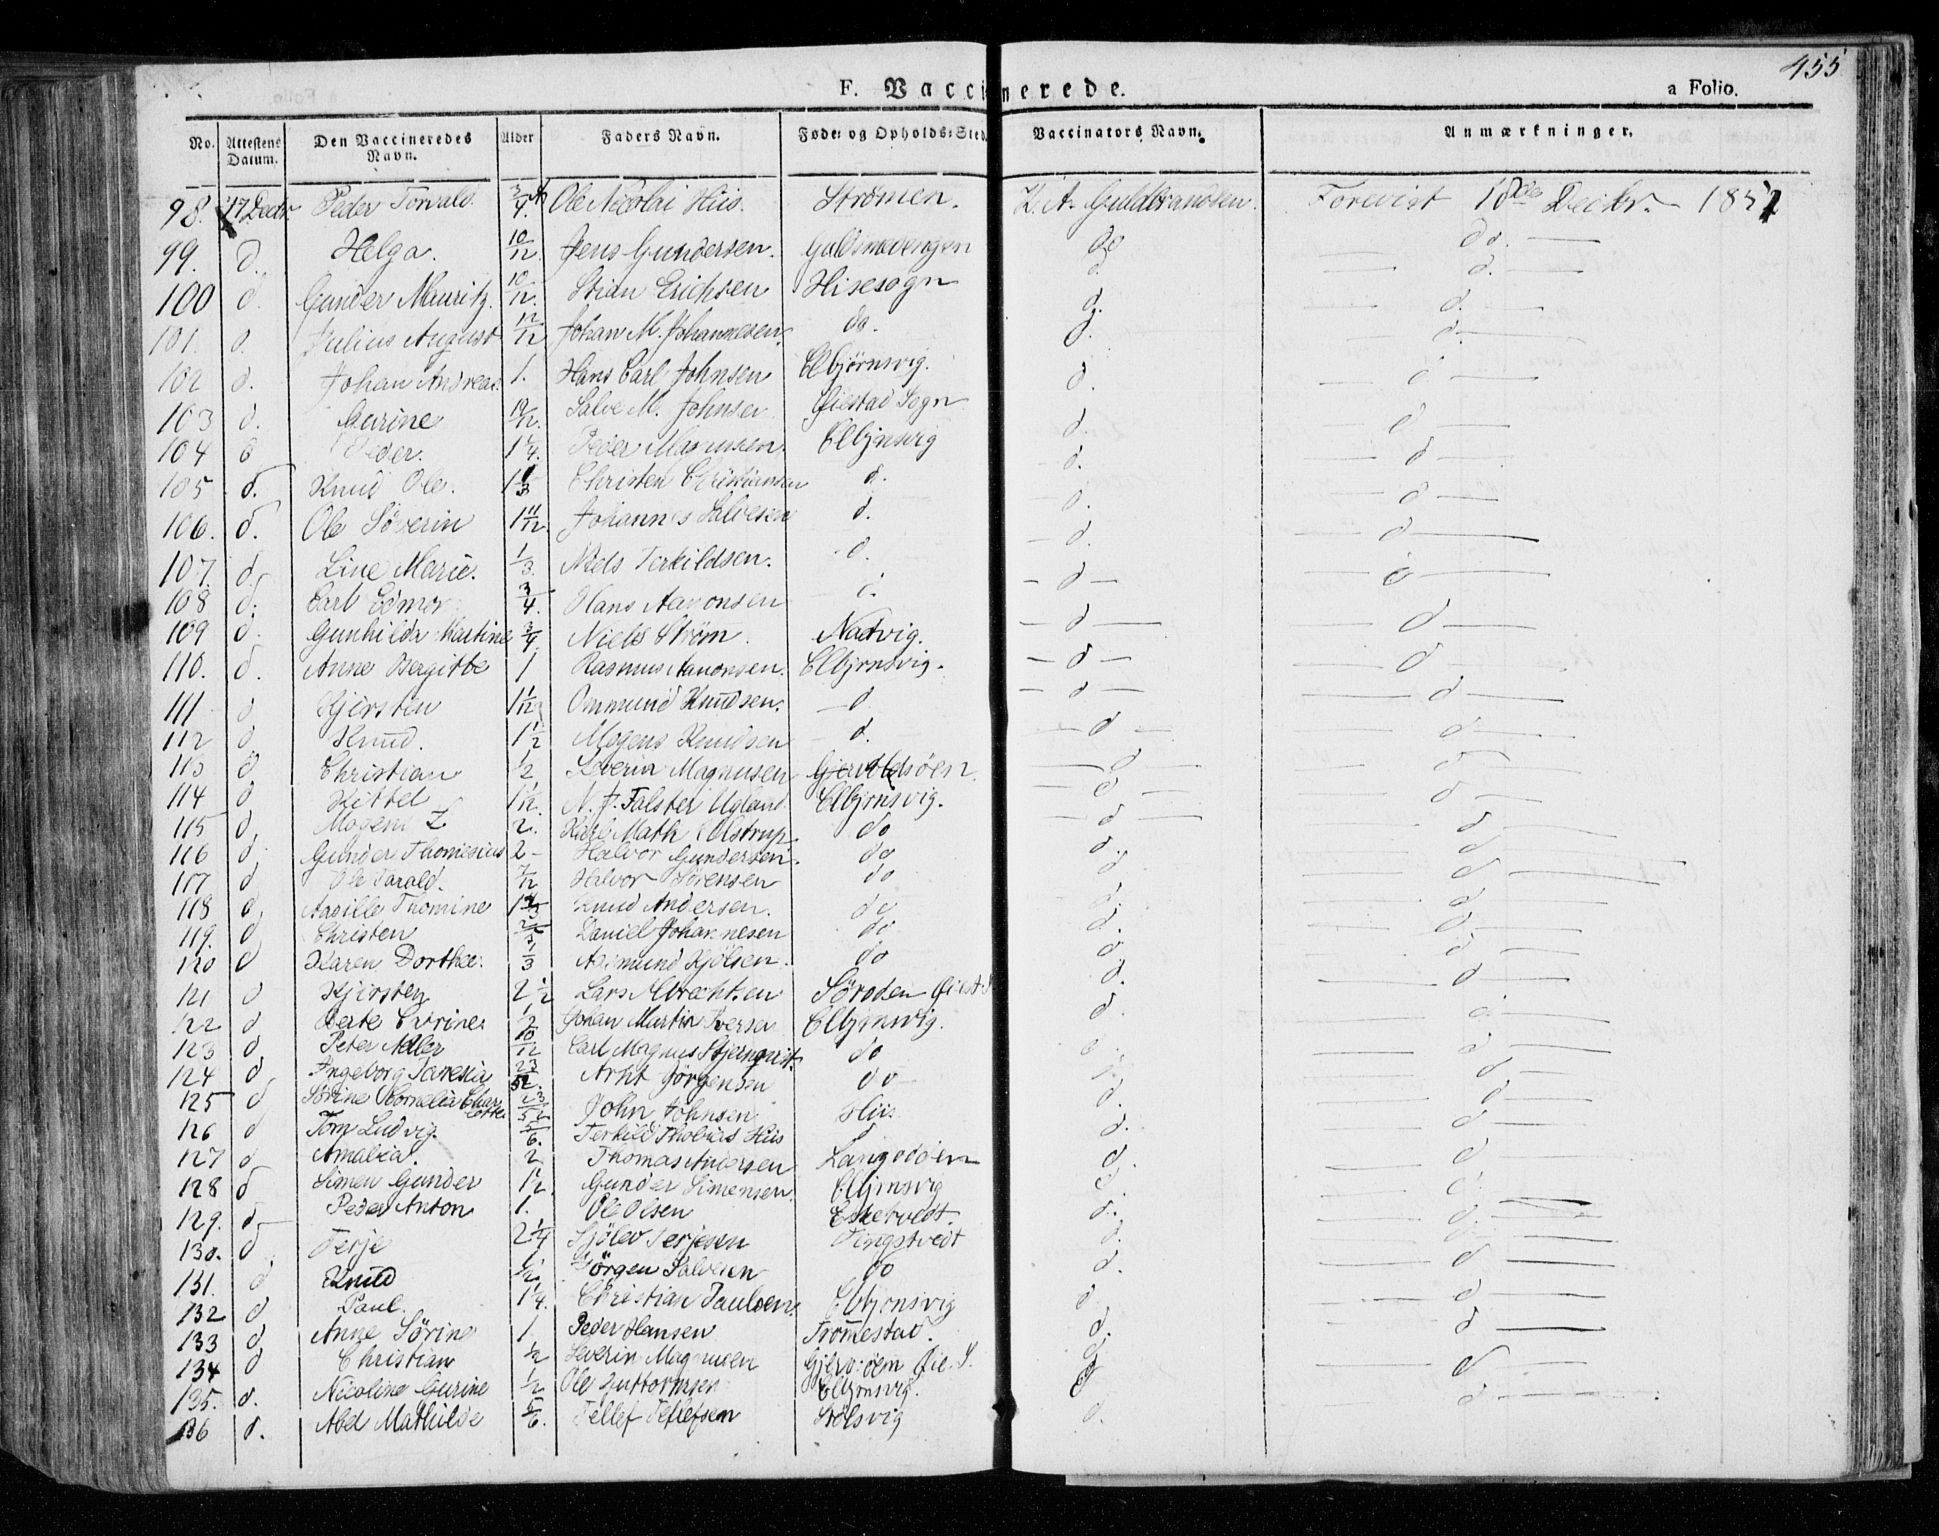 455
F. Vaccinerede. a Folio.
No. Attestens Datum. Den Vaccineredes Navn. Alder Faders Navn. Føde: og Opholds: Sted. Vaccinators Navn. Anmærkninger.
98. 17 Decbr. Peder Torvald 3/4 Ole Nicolai Hiis. Strømen. K. A. Guldbrandsen. Forevist 18de Decbr. 1851
99. d. Helga. 10/12 Jens Gundersen. Guldsmedengen do do.
100 d. Gunder Mauritz. 10/12. Stian Erichsen Hisesogn d. d.
101. d. Julius August 12/12 Johan M. Johannesen. do. d. d.
102 d. Johan Andreas 1. Hans Carl Johnsen Elbjørnsvig. d. d.
103 d. Gurine 10/12. Salve M. Johnsen Øiestad Sogn d. d
104 d Peder. 1 1/4. Peder Magnussen. Elbjnsvig d. d
105 d. Knud Ole. 1 1/3 Christen Christiansen d. d. d
106. d. Ole Söverin 1 11/12. Johannes Salvesen d. d. d
107. d. Line Marie. 1/3. Niels Terkildsen. d. d. d
108 d. Carl Edmor 3/4. Hans Aavonsen d. d d
109 d. Gunhilda Martine 3/4. Niels Strøm. Nadvig. d d
110. d. Anne Bergitte 1 Rasmus Aanonsen. Elbjrnsvig. d d
111 d Kjersten 1 1/12 Ommund Knudsen. d d d
112 d. Knud. 1 1/2 Mogens Knudsen d. d d
113 d. Christian 1/2 Severin Magnusen Gjervoldsöen. d d
114 d Kittel 1 1/12. N. J. Falster Ugland. Elbjrnsvig. d d
115 d. Mogens L 2. Karl Math Olstrup. do d d
116 d. Gunder Thomesius 2 Halvor Gundersen. do d. d
117 d. Ole Harald. 7/12 Halvor Sörensen do d. d
118 d. Aasille Thomine 1 2/3 Knud Andersen. do d. d
119. d Christen 2/3 Daniel Johannesen do d. d
120 d Karen Dorthee. 1/3 Aasmund Kjölsen. do d d
121 d Kjersten 2 1/2 Lars Albrechtsen Söroden Øiest S d. d
122 d. Berte Gurine. 1/2 Johan Martin Iversen Elbjrnsvig. d. d
123 d. Peter Adler 10/12 Carl Magnus Stjernqvist. do d. d
124 d. Ingeborg Taresia 23/52. Arnt Jörgensen do d. d
125 d Sörine Cornelia Charlotte 23/52 John Johnsen Hiis d. d
126 d Tom Ludvig. 5/6. Terkild Thobias Hiis d. d
127 d Amalia. 2 Thomas Andersen Langodöen d. d
128 d Simen Gunder 1/2. Gunder Simensen. Elbjrnsvig d. d.
129. d. Peder Anton 1. Ole Olsen Eskervedt. d. d
130. d. Terje 2 1/4 Sjölev Terjesen Tingstvedt d. d
131. d Knud 1/2 Jörgen Salvesen do d. d
132 d. Paul. 1 1/4. Christian Paulsen. Elbjrnsvig d d
133 d. Anne Sörine 1. Peder Hansen Tromestad. d. d
134 d Christian 1/2 Severin Magnusen Gjervöen Øie. S. d d
135. d. Nicoline Gurine 1/2 Ole Guttormsen Elbjrnsvig. d d
136 d. Abel Mathilde 5/6. Tellef Tellefsen Stölsvig d.